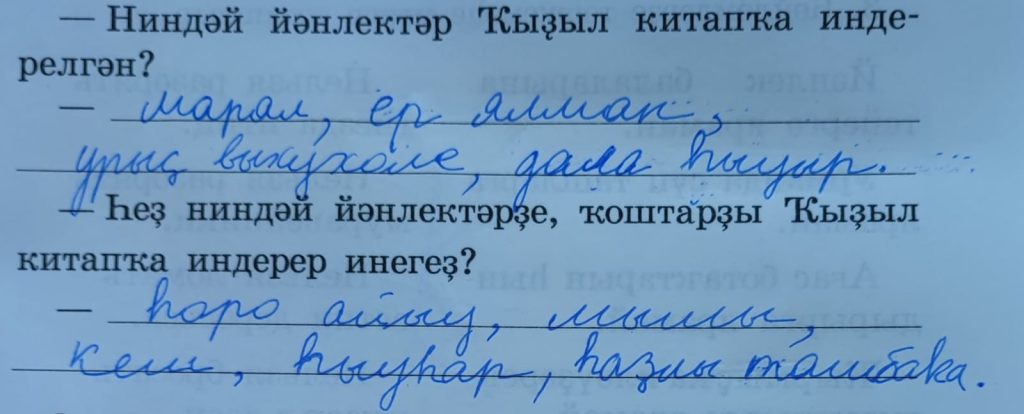 — Ниндәй йәнлектәр Ҡыҙыл китапҡа инде-
релгән?
— марал, ер ялман,
урыҫ выхухоле, дала һыуыр.
— Һеҙ ниндәй йәнлектәрҙе, ҡоштарҙы Ҡыҙыл
китапҡа индерер инегеҙ?
— һоро айыу, мышы,
кеш, һыуһар, һаҙлы ташбака.